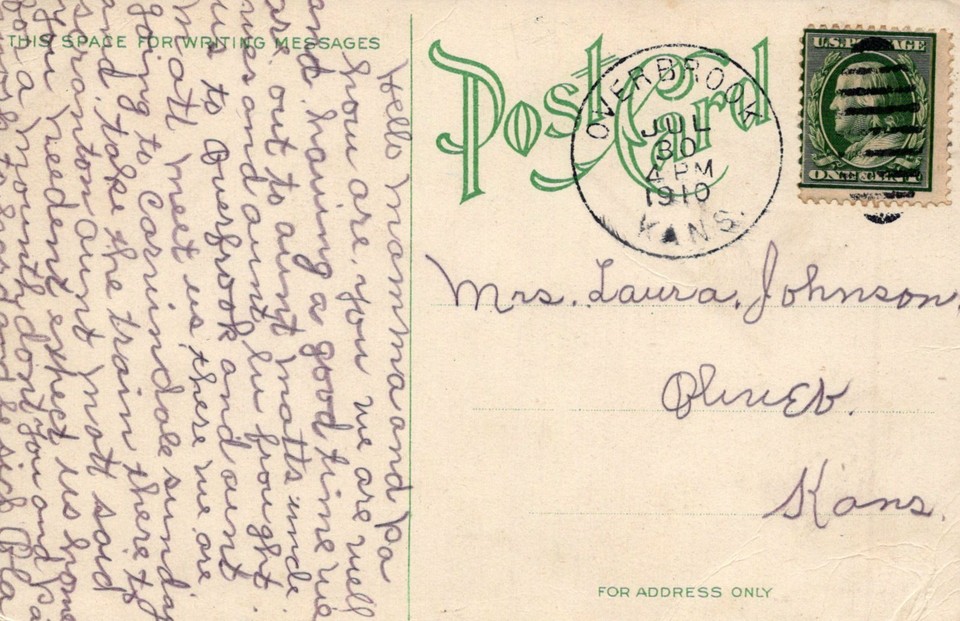 THIS SPACE FOR WRITING MESSAGES
Hello mommma and Pa
how are you we are well
and having a good time we
are out to aunt matts uncle
wes and aunt lu frought
us to Overfrook and aunt
matt meet us there we are
going to Carsindale sunday
and take the train there to
scranton aunt matt said
you needent expect us home
for a month dont you and Pa
work to hard and be sick
Post Card
OVERBROOK
JUL
30
4 PM
1910
KANS.
U.S. POSTAGE
ONE CENT
Mrs. Laura. Johnson,
Olivet.
Kans.
FOR ADDRESS ONLY